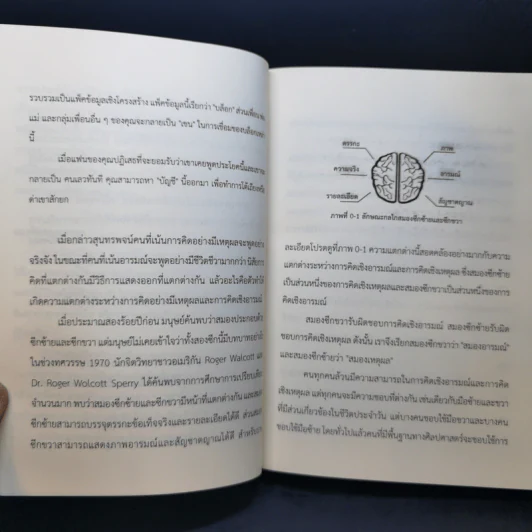 รวบรวมเป็นแพ็คข้อมูลเชิงโครงสร้าง แพ็คข้อมูลนี้เรียกว่า "บล็อก" ส่วนเพื่อน
แม่ และกลุ่มเพื่อนอื่น ๆ ของคุณจะกลายเป็น "เชน" ในการเชื่อมของบล็อก
นี้
เมื่อแฟนของคุณปฏิเสธที่จะยอมรับว่าเขาเคยพูดประโยคนี้
กลายเป็น คนเลวทันที คุณสามารถหา "บัญชี" นี้ออกมา เพื่อทำการโต้เถียง
ด่าเขาสักยก
เมื่อกล่าวสุนทรพจน์คนที่เน้นการคิดอย่างมีเหตุผลจะพูดอย่าง
จริงจัง ในขณะที่คนที่เน้นอารมณ์จะพูดอย่างมีชีวิตชีวามากกว่า นิสัยการ
คิดที่แตกต่างกันมีวิธีการแสดงออกที่แตกต่างกัน แล้วอะไรคือตัวทำให้
เกิดความแตกต่างระหว่างการคิดอย่างมีเหตุผลและการคิดเชิงอารมณ์
เมื่อประมาณสองร้อยปีก่อน มนุษย์ค้นพบว่าสมองประกอบด้วย
ซีกซ้ายและซีกขวา แต่มนุษย์ไม่เคยเข้าใจว่าทั้งสองซีกนี้มีบทบาทอย่างไร
ในช่วงทศวรรษ 1970 นักจิตวิทยาชาวอเมริกัน Roger Walcott และ
Dr. Roger Wolcott Sperry ได้ค้นพบจากการศึกษาการเปรียบเทียบ
จำนวนมาก พบว่าสมองซีกซ้ายและซีกขวามีหน้าที่แตกต่างกัน
ซีกซ้ายสามารถบรรจุตรรกะข้อเท็จจริงและรายละเอียดได้ดี ส่วนสมอง
ซีกขวาสามารถแสดงภาพอารมณ์และสัญชาตญาณได้ดี สำหรับ
ตรรกะ
ภาพ
ความจริง
อารมณ์
รายละเอียด
สัญชาตญาณ
ภาพที่ 0-1 ลักษณะกลไกสมองซีกซ้ายและซีกขวา
ละเอียดโปรดดูที่ภาพ 0-1 ความแตกต่างนี้สอดคล้องอย่างมากกับความ
แตกต่างระหว่างการคิดเชิงอารมณ์และการคิดเชิงเหตุผล ซึ่งสมองซีกซ้าย
เป็นส่วนหนึ่งของการคิดเชิงเหตุผลและสมองซีกขวาเป็นส่วนหนึ่งของการ
คิดเชิงอารมณ์
สมองซีกขวารับผิดชอบการคิดเชิงอารมณ์ สมองซีกซ้ายรับผิด
ชอบการคิดเชิงเหตุผล ดังนั้น เราจึงเรียกสมองซีกขวาว่า "สมองอารมณ์"
และสมองซีกซ้ายว่า "สมองเหตุผล"
คนทุกคนล้วนมีความสามารถในการคิดเชิงอารมณ์และการคิด
เชิงเหตุผล แต่ทุกคนจะมีความชอบที่ต่างกัน เช่นเดียวกับมือซ้ายและขวา
ที่มีส่วนเกี่ยวข้องในชีวิตประจำวัน แต่บางคนชอบใช้มือขวาและบางคน
ชอบใช้มือซ้าย โดยทั่วไปแล้วคนที่มีพื้นฐานทางศิลปศาสตร์จะชอบใช้การ